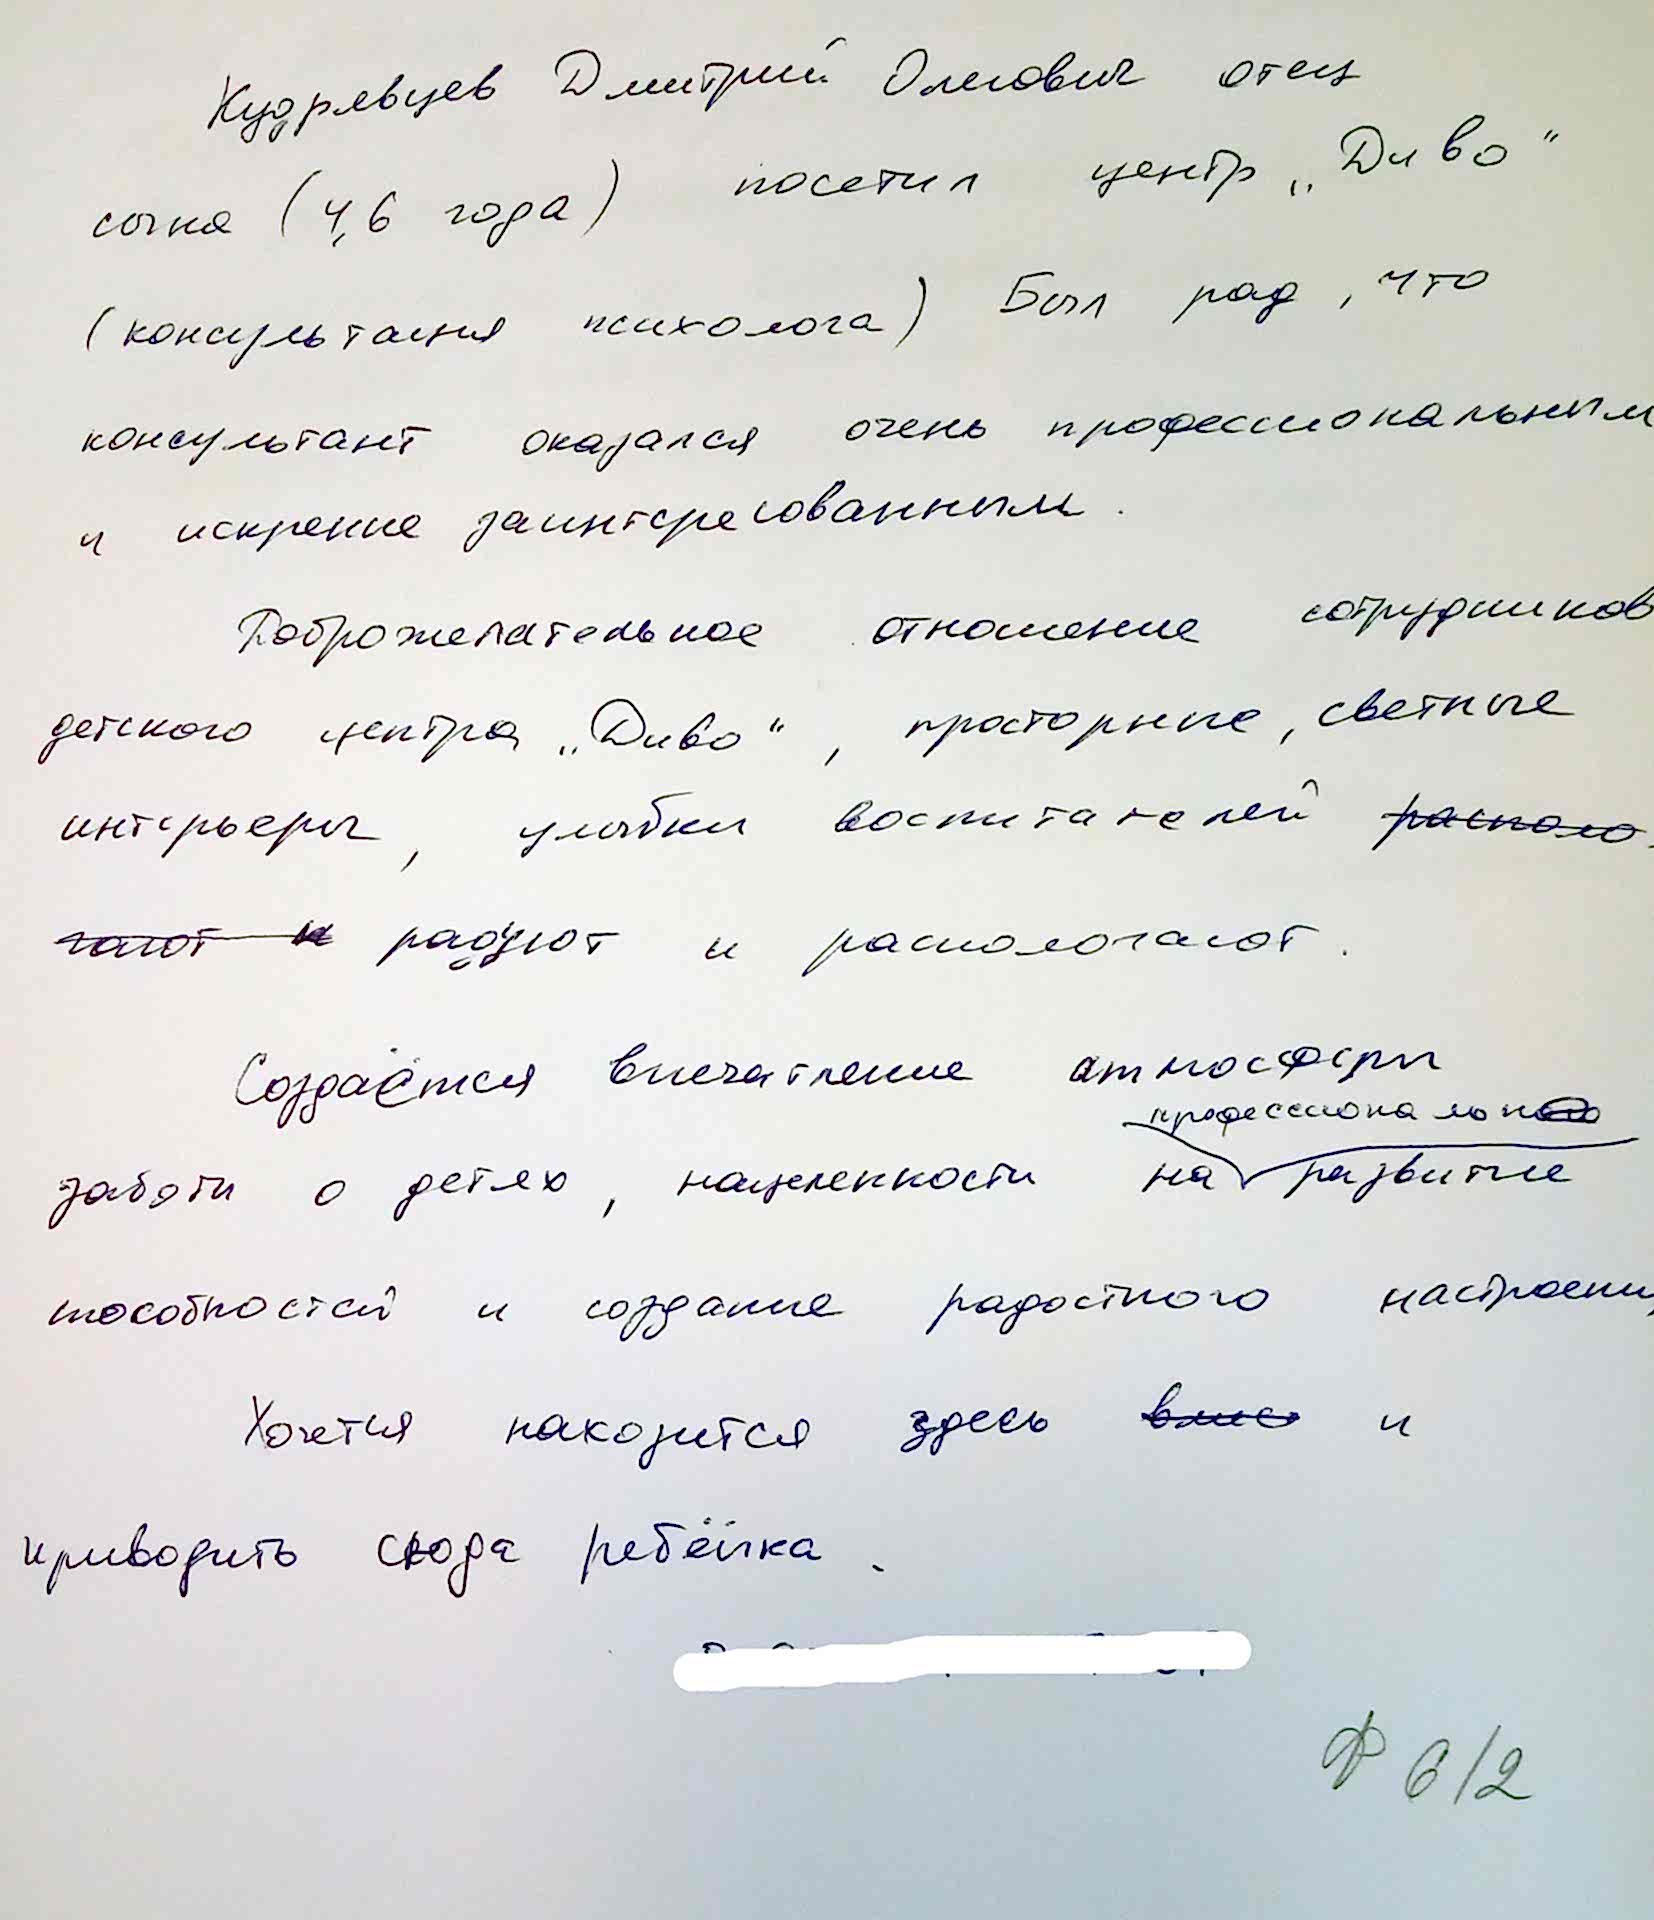 Кудрявцев Дмитрий Олегович отец
сына (4,6 года) посетил центр „Диво“
(консультация психолога) Был рад, что
консультант оказался очень профессиональным
и искренне заинтересованным.
Доброжелательное отношение сотрудников
детского центра „Диво“, просторные, светлые
интерьеры, улыбки воспитателей располо
гают и радуют и распологают.
Создаётся впечатление атмосферы
профессионально
заботы о детях, нацеленности на развитие
способностей и создание радостного настроения
Хочется находится здесь и
приводить сюда ребёнка.
Ф 6/2